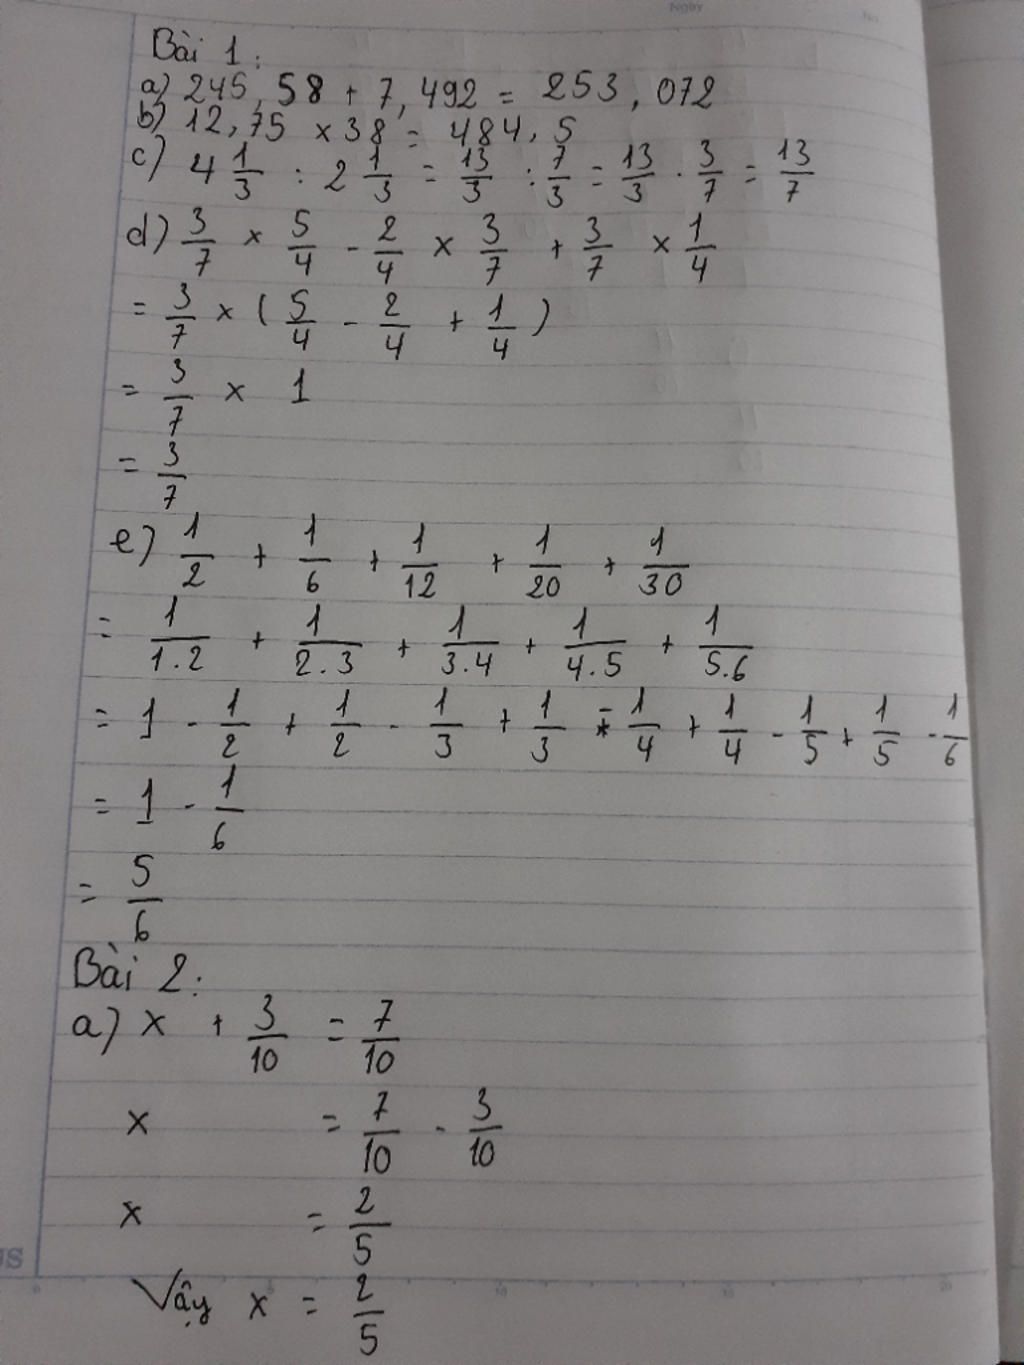 Ngày
No.
Bài 1:
a) 245,58 + 7,492 = 253,072
b) 12,75 x 38 = 484,5
c) 4 1/3 : 2 1/3 = 13/3 : 7/3 = 13/3 . 3/7 = 13/7
d) 3/7 x 5/4 - 2/4 x 3/7 + 3/7 x 1/4
= 3/7 x ( 5/4 - 2/4 + 1/4 )
= 3/7 x 1
= 3/7
e) 1/2 + 1/6 + 1/12 + 1/20 + 1/30
= 1/1.2 + 1/2.3 + 1/3.4 + 1/4.5 + 1/5.6
= 1 - 1/2 + 1/2 - 1/3 + 1/3 - 1/4 + 1/4 - 1/5 + 1/5 - 1/6
= 1 - 1/6
= 5/6
Bài 2:
a) x + 3/10 = 7/10
x = 7/10 - 3/10
x = 2/5
Vậy x = 2/5